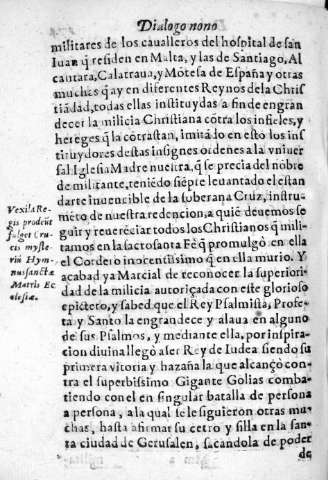 Dialogo nono
militares de los caualleros del hospital de san
Iuan q̃ residen en Malta, y las de Santiago, Al
cantara, Calatraua, y Mõtesa de España y otras
muchas q̃ ay en diferentes Reynos de la Chris
tiãdad, todas ellas instituydas a fin de engran
decer la milicia Christiana cõtra los infieles, y
hereges q̃ la cõtrastan, imitãdo en esto los ins
tituydores destas insignes ordenes a la vniuer
sal Iglesia Madre nuestra, q̃ se precia del nõbre
de militante, teniẽdo siẽpre leuantado el estan
darte inuencible de la soberana Cruz, instru-
mẽto de nuestra redencion, a quiẽ deuemos se
guir y reuerẽciar todos los Christianos q̃ mili-
tamos en la sacrosanta Fè q̃ promulgò en ella
el Cordero inocentissimo q̃ en ella murio. Y
acabad ya Marcial de reconocer la superiori-
dad de la milicia autoriçada con este glorioso
epicteto, y sabed que el Rey Psalmista, Profe-
ta y Santo la engrandece y alaua en alguno
de sus Psalmos, y mediante ella, por inspira-
cion diuina llegò a ser Rey de Iudea siendo su
primera vitoria y hazaña la que alcançò con-
tra el superbissimo Gigante Golias comba-
tiendo con el en singular batalla de persona
a persona, a la qual le siguieron otras mu-
chas, hasta afirmar su cetro y silla en la san-
ta ciudad de Gerusalen, sacandola de poder
de
Vexila Re-
gis prodeũt
fulget Cru-
cis myste-
riũ Hym-
nus sanctæ
Matris Ec
clesiæ.